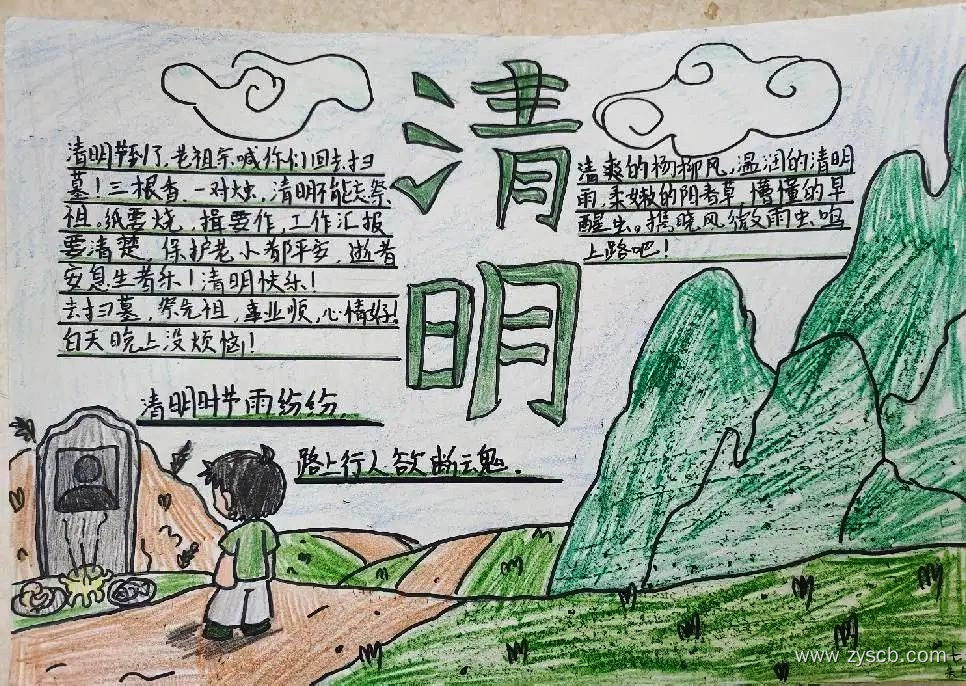 清明
清明节到了,老祖宗喊你们回去扫
墓!三根香,一对烛,清明不能忘祭
祖。纸要烧,揖要作,工作汇报
要清楚,保护老小都平安,逝者
安息生者乐!清明快乐!
去扫墓,祭先祖,事业顺,心情好,
白天晚上没烦恼!
清爽的杨柳风,温润的清明
雨,柔嫩的阳春草,懵懂的早
醒虫。携晓风微雨虫鸣
上路吧!
清明时节雨纷纷,
路上行人欲断魂.
www.zyscb.com